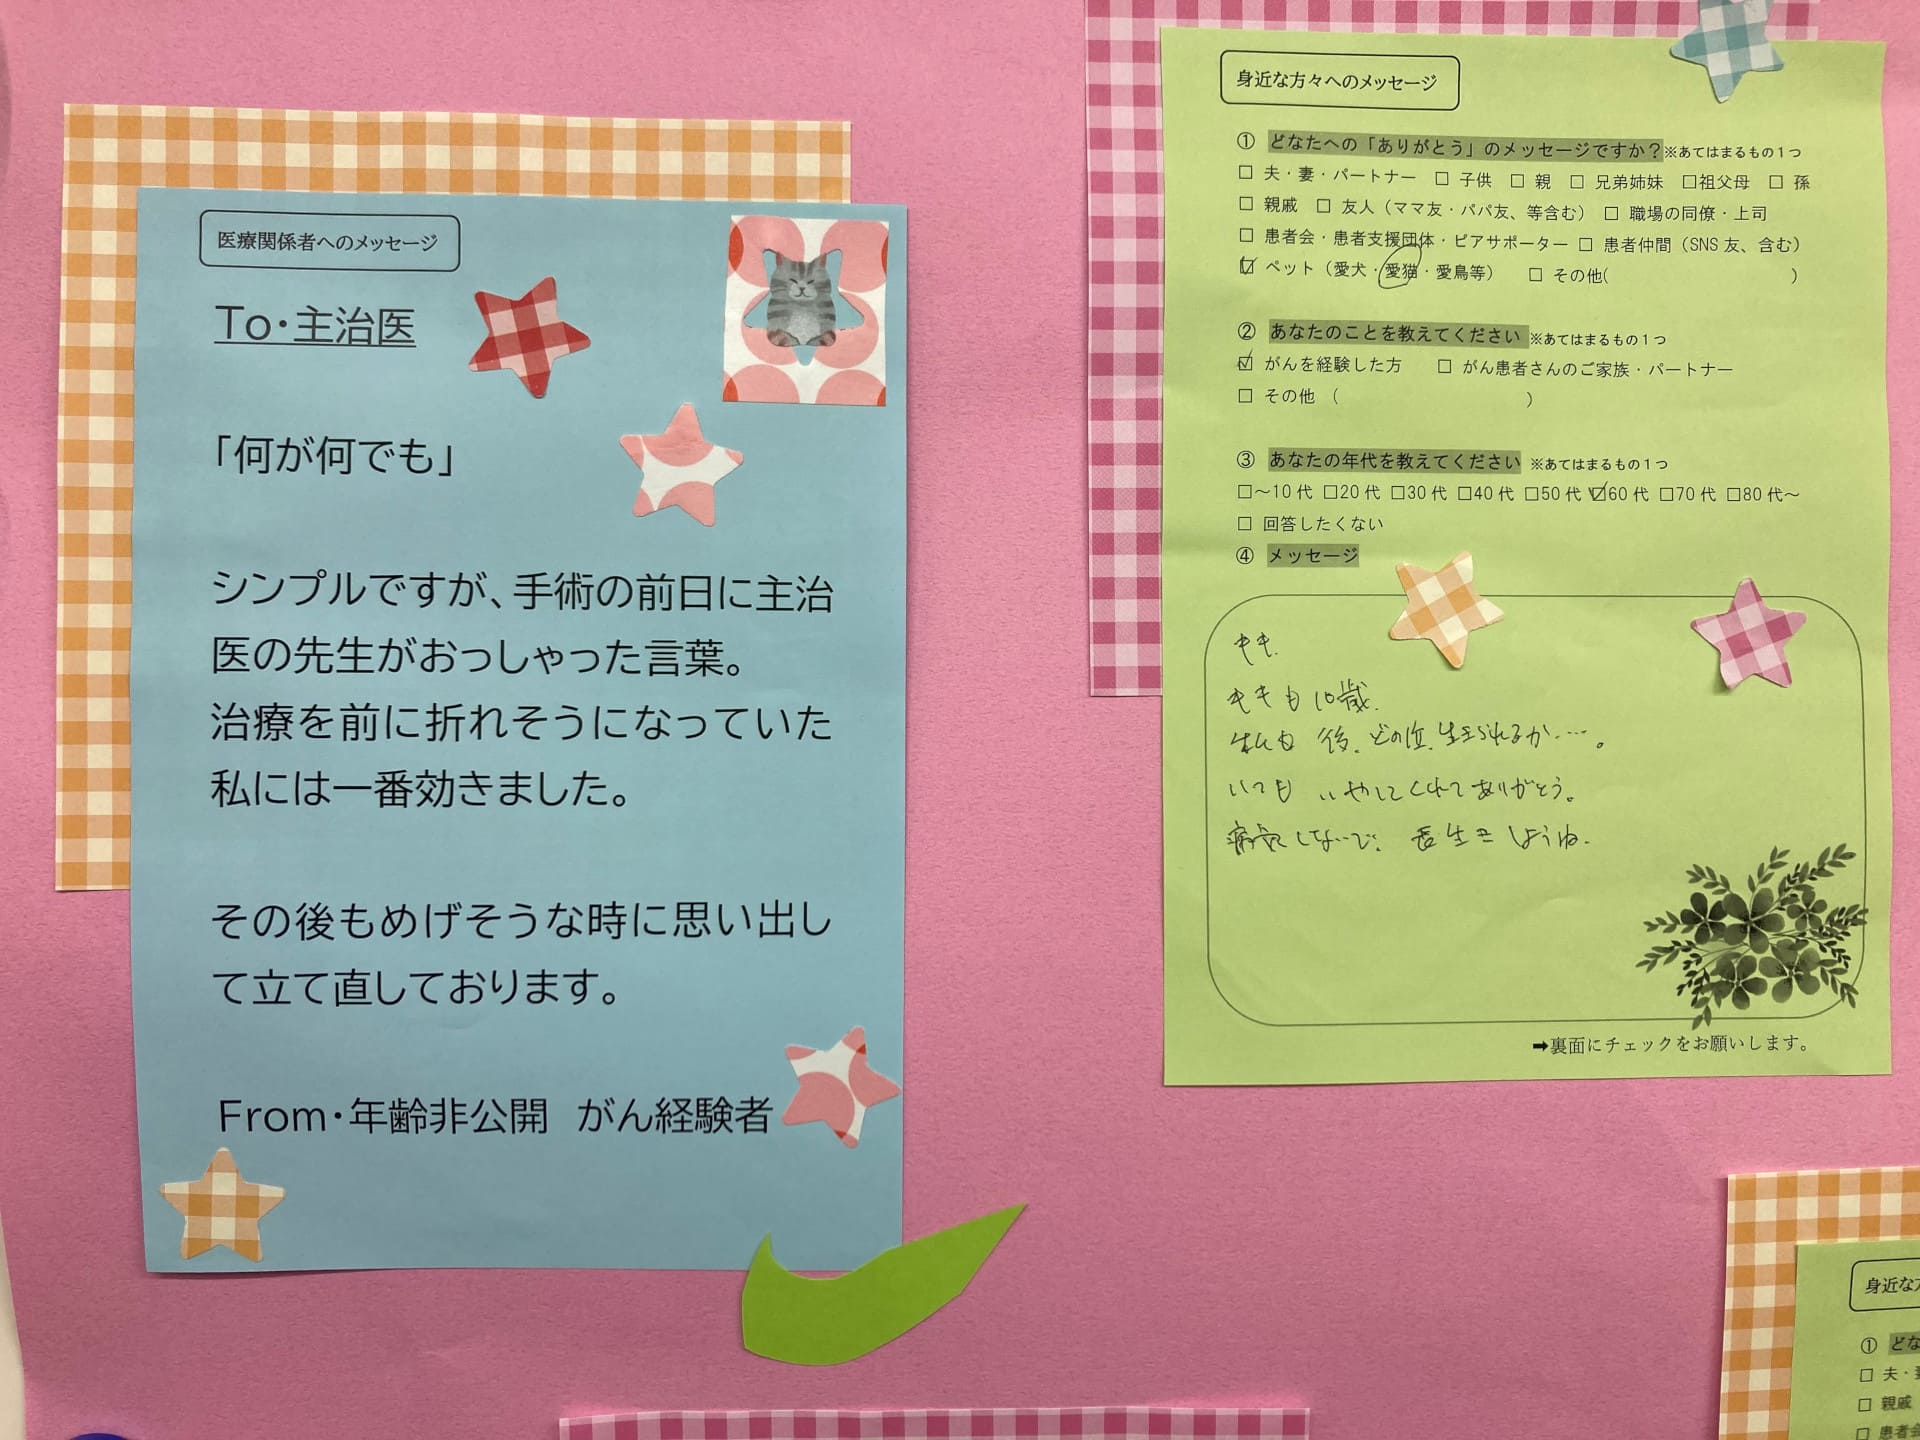 医療関係者へのメッセージ
To・主治医
「何が何でも」
シンプルですが、手術の前日に主治
医の先生がおっしゃった言葉。
治療を前に折れそうになっていた
私には一番効きました。
その後もめげそうな時に思い出し
て立て直しております。
From・年齢非公開　がん経験者
身近な方々へのメッセージ
① どなたへの「ありがとう」のメッセージですか？※あてはまるもの１つ
□ 夫・妻・パートナー □ 子供 □ 親 □ 兄弟姉妹 □祖父母 □ 孫
□ 親戚 □ 友人（ママ友・パパ友、等含む） □ 職場の同僚・上司
□ 患者会・患者支援団体・ピアサポーター □ 患者仲間（SNS 友、含む）
☑ ペット（愛犬・愛猫・愛鳥等） □ その他(　　　)
② あなたのことを教えてください ※あてはまるもの１つ
☑ がんを経験した方 □ がん患者さんのご家族・パートナー
□ その他 （　　　）
③ あなたの年代を教えてください ※あてはまるもの１つ
□～10 代 □20 代 □30 代 □40 代 □50 代 ☑60 代 □70 代 □80 代～
□ 回答したくない
④ メッセージ
キキ.
キキも 10歳.
私も 後、どの位、生きられるか…。
いつも いやしてくれてありがとう。
病気しないで、長生きしようね.
➡裏面にチェックをお願いします。
身近な
① どな
□ 夫・
□ 親戚
□ 患者会